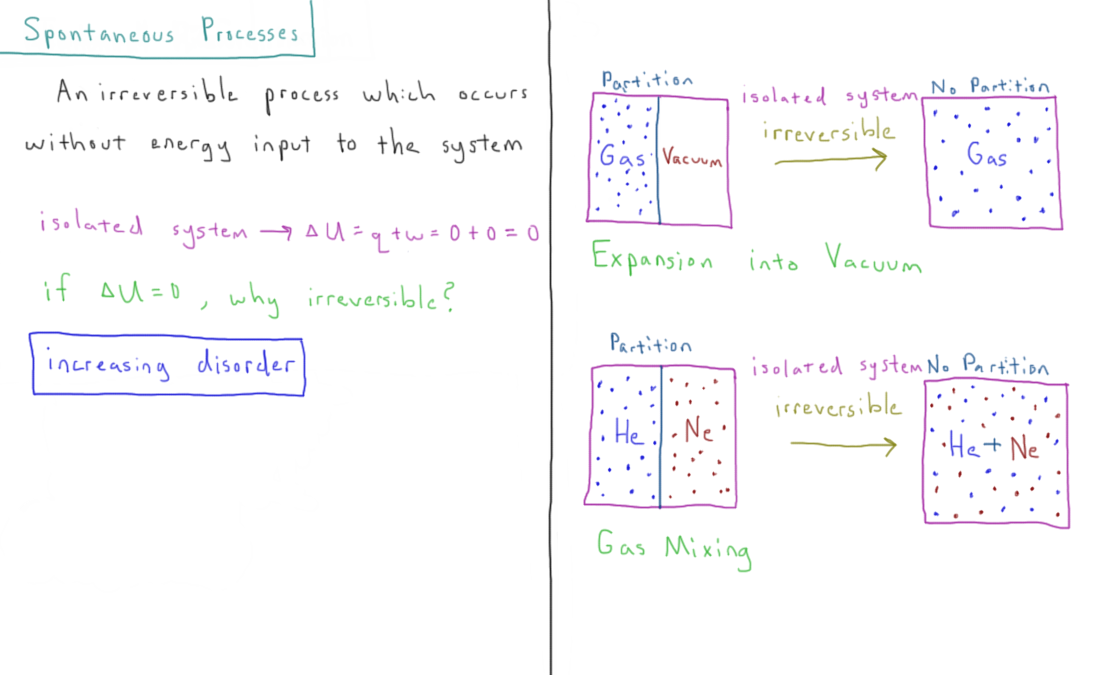 Spontaneous Processes
An irreversible process which occurs
without energy input to the system
isolated system → ΔU = q + w = 0 + 0 = 0
if ΔU = 0, why irreversible?
increasing disorder
Partition
isolated system
No Partition
irreversible
Gas
Vacuum
Gas
Expansion into Vacuum
Partition
isolated system
No Partition
irreversible
He
Ne
He + Ne
Gas Mixing